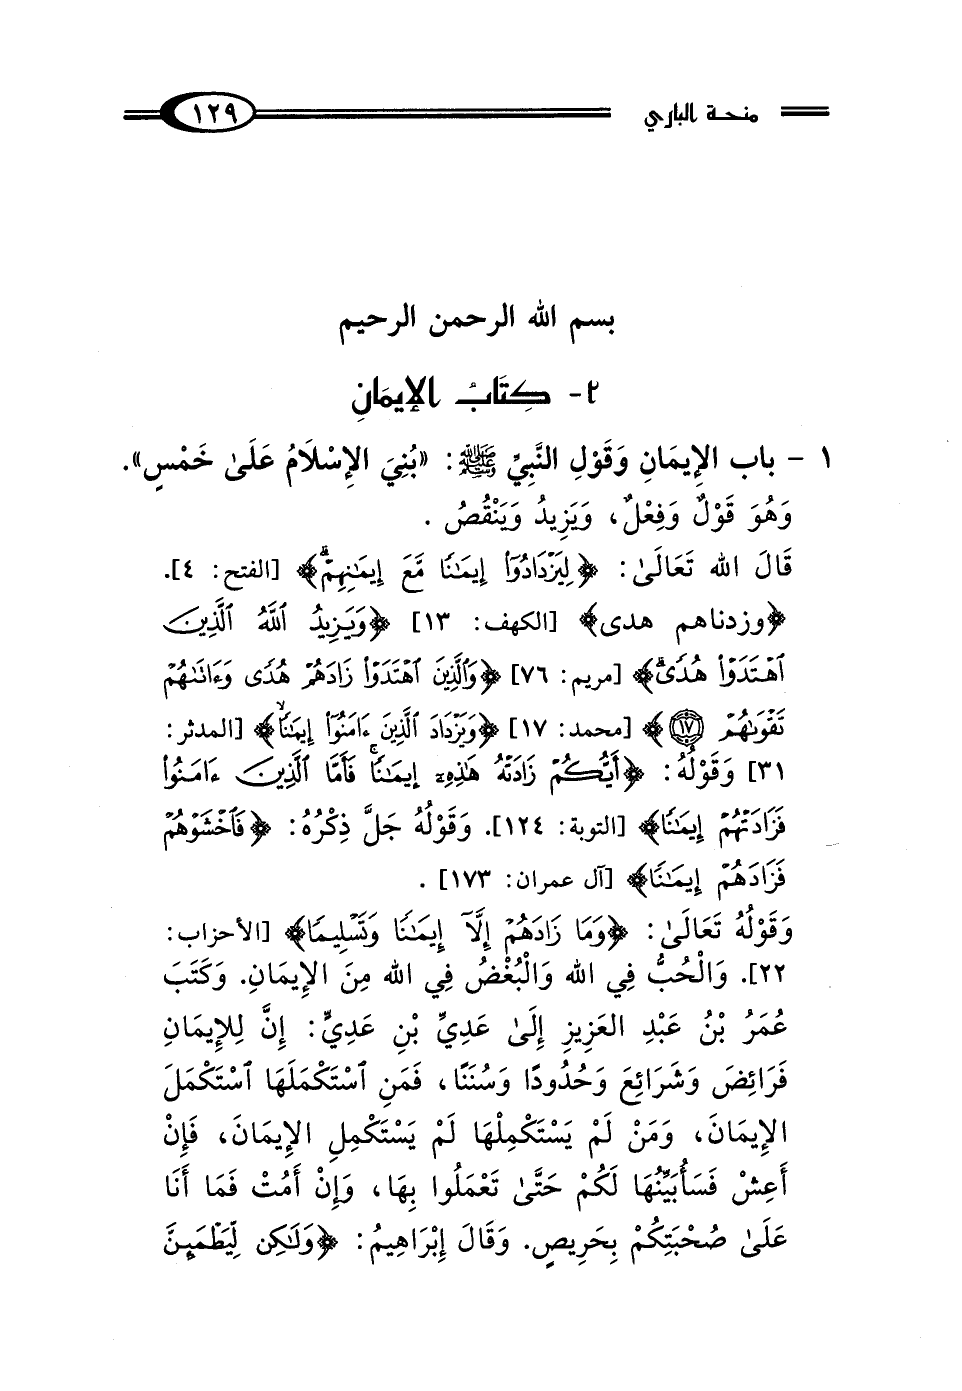 منحة الباري ١٢٩
بسم الله الرحمن الرحيم
٢- كِتَابُ الإِيمَانِ
١ - باب الإِيمَانِ وَقَوْلِ النَّبِيِّ ﷺ: «بُنِيَ الإِسْلَامُ عَلَىٰ خَمْسٍ».
وَهُوَ قَوْلٌ وَفِعْلٌ، وَيَزِيدُ وَيَنْقُصُ .
قَالَ الله تَعَالَىٰ: ﴿لِيَزْدَادُوٓا۟ إِيمَـٰنًا مَّعَ إِيمَـٰنِهِمْ ۗ﴾ [الفتح: ٤].
﴿وزدناهم هدى﴾ [الكهف: ١٣] ﴿وَيَزِيدُ ٱللَّهُ ٱلَّذِينَ
ٱهْتَدَوْا۟ هُدًى ۗ﴾ [مريم: ٧٦] ﴿وَٱلَّذِينَ ٱهْتَدَوْا۟ زَادَهُمْ هُدًى وَءَاتَىٰهُمْ
تَقْوَىٰهُمْ ١٧﴾ [محمد: ١٧] ﴿وَيَزْدَادَ ٱلَّذِينَ ءَامَنُوٓا۟ إِيمَـٰنًا ۙ﴾ [المدثر:
٣١] وَقَوْلُهُ: ﴿أَيُّكُمْ زَادَتْهُ هَـٰذِهِۦٓ إِيمَـٰنًا ۚ فَأَمَّا ٱلَّذِينَ ءَامَنُوا۟
فَزَادَتْهُمْ إِيمَـٰنًا﴾ [التوبة: ١٢٤]. وَقَوْلُهُ جَلَّ ذِكْرُهُ: ﴿فَٱخْشَوْهُمْ
فَزَادَهُمْ إِيمَـٰنًا﴾ [آل عمران: ١٧٣] .
وَقَوْلُهُ تَعَالَىٰ: ﴿وَمَا زَادَهُمْ إِلَّآ إِيمَـٰنًا وَتَسْلِيمًا﴾ [الأحزاب:
٢٢]. وَالْحُبُّ فِي الله وَالْبُغْضُ فِي الله مِنَ الإِيمَانِ. وَكَتَبَ
عُمَرُ بْنُ عَبْدِ العَزِيزِ إِلَىٰ عَدِيِّ بْنِ عَدِيٍّ: إِنَّ لِلإِيمَانِ
فَرَائِضَ وَشَرَائِعَ وَحُدُودًا وَسُنَنًا، فَمَنِ ٱسْتَكْمَلَهَا ٱسْتَكْمَلَ
الإِيمَانَ، وَمَنْ لَمْ يَسْتَكْمِلْهَا لَمْ يَسْتَكْمِلِ الإِيمَانَ، فَإِنْ
أَعِشْ فَسَأُبَيِّنُهَا لَكُمْ حَتَّىٰ تَعْمَلُوا بِهَا، وَإِنْ أَمُتْ فَمَا أَنَا
عَلَىٰ صُحْبَتِكُمْ بِحَرِيصٍ. وَقَالَ إِبْرَاهِيمُ: ﴿وَلَـٰكِن لِّيَطْمَئِنَّ